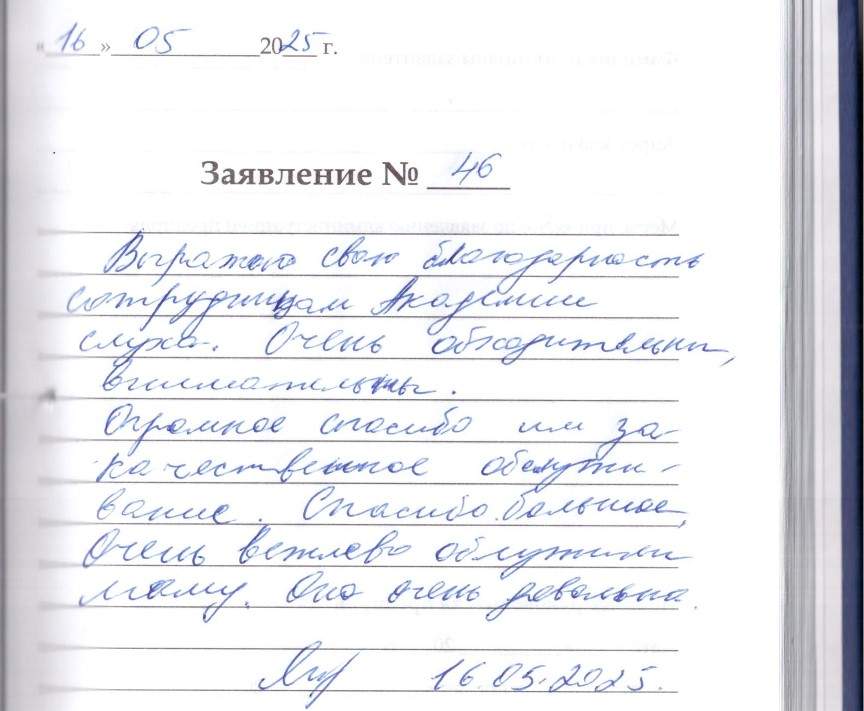 «16» 05 2025 г.
Заявление № 46
Выражаю свою благодарность
сотрудницам Академии
слуха. Очень обходительны,
внимательны.
Огромное спасибо им за
качественное обслужи-
вание. Спасибо большое,
Очень вежлево обслужили
маму. Она очень довольна.
16.05.2025.